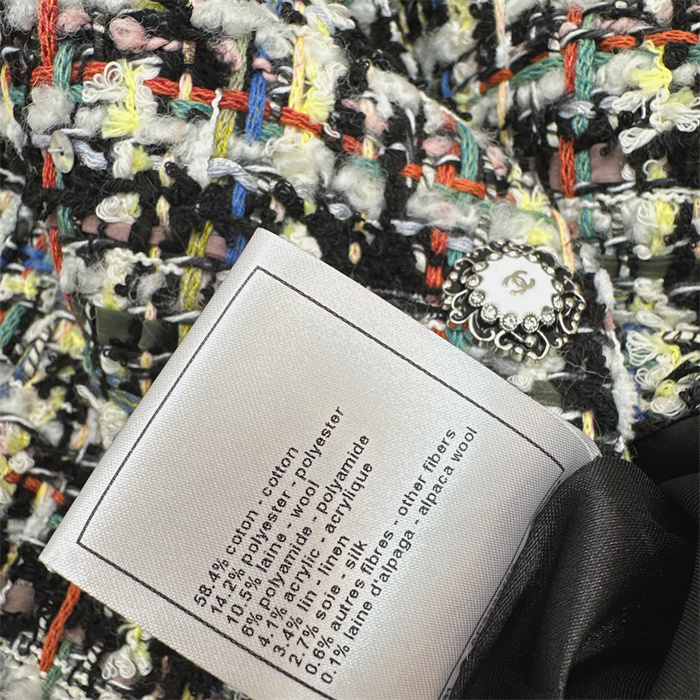 58.4% coton - cotton
14.2% polyester - polyester
10.5% laine - wool
6% polyamide - polyamide
4.1% acrylic - acrylique
3.4% lin - linen
2.7% soie - silk
0.6% autres fibres - other fibers
0.1% laine d'alpaga - alpaca wool